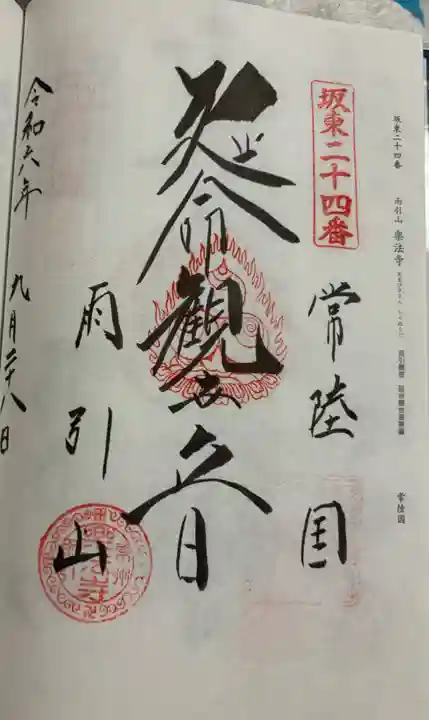 坂東二十四番 雨引山 楽法寺 常陸国
坂東二十四番
常陸国
延命観世音
雨引山
令和六年 九月二十八日